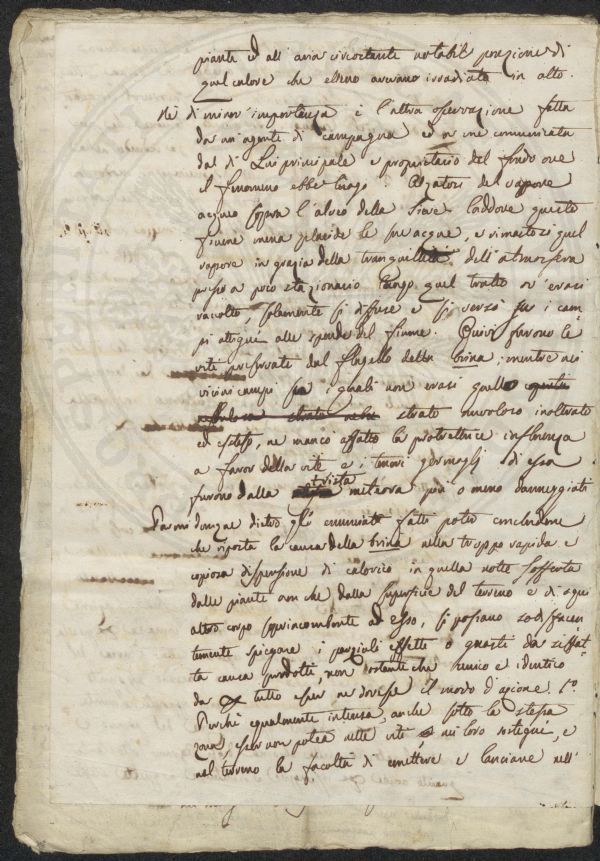 piante ed all'aria circostante notabil porzione di
quel calore che elleno avevano irradiato in alto.
Nè di minor importanza è l'altra osservazione fatta
da un agente di campagna ed a me comunicata
dal di Lui principale e proprietario del fondo ove
il fenomeno ebbe luogo: Alzatosi del vapore
acqueo sopra l'alveo della Sieve laddove questo
fiume mena placide le sue acque, e rimastosi quel
vapore in grazia della tranquillità dell'atmosfera
presso a poco stazionario lungo quel tratto ov'erasi
raccolto, solamente si diffuse e si versò su i cam-
pi attigui alle sponde del fiume. Quivi furono le
viti preservate dal flagello della brina; mentre nei
vicini campi su i quali non erasi quello
strato nuvoloso inoltrato
ed esteso, ne mancò affatto la protettrice influenza
a favor della vite e i teneri germogli di essa
furono dalla trista meteora più o meno danneggiati
Parmi dunque dietro gli enunciati fatti poter concludere
che riposta la causa della brina nella troppo rapida e
copiosa dispersione di calorico in quella notte sofferta
dalle piante anche dalla superficie del terreno e di ogni
altro corpo sovraincombente ad esso, si possano sodisfacen-
temente spiegare i parziali effetti o guasti da siffat-
ta causa prodotti, non ostante che unico e identico
da tutto esser ne dovesse il modo d'azione. 1.º
Perchè egualmente intensa, anche sotto la stessa
zona, esser non potea nelle viti nei loro sostegni, e
nel terreno la facoltà di emettere e lanciare nell'